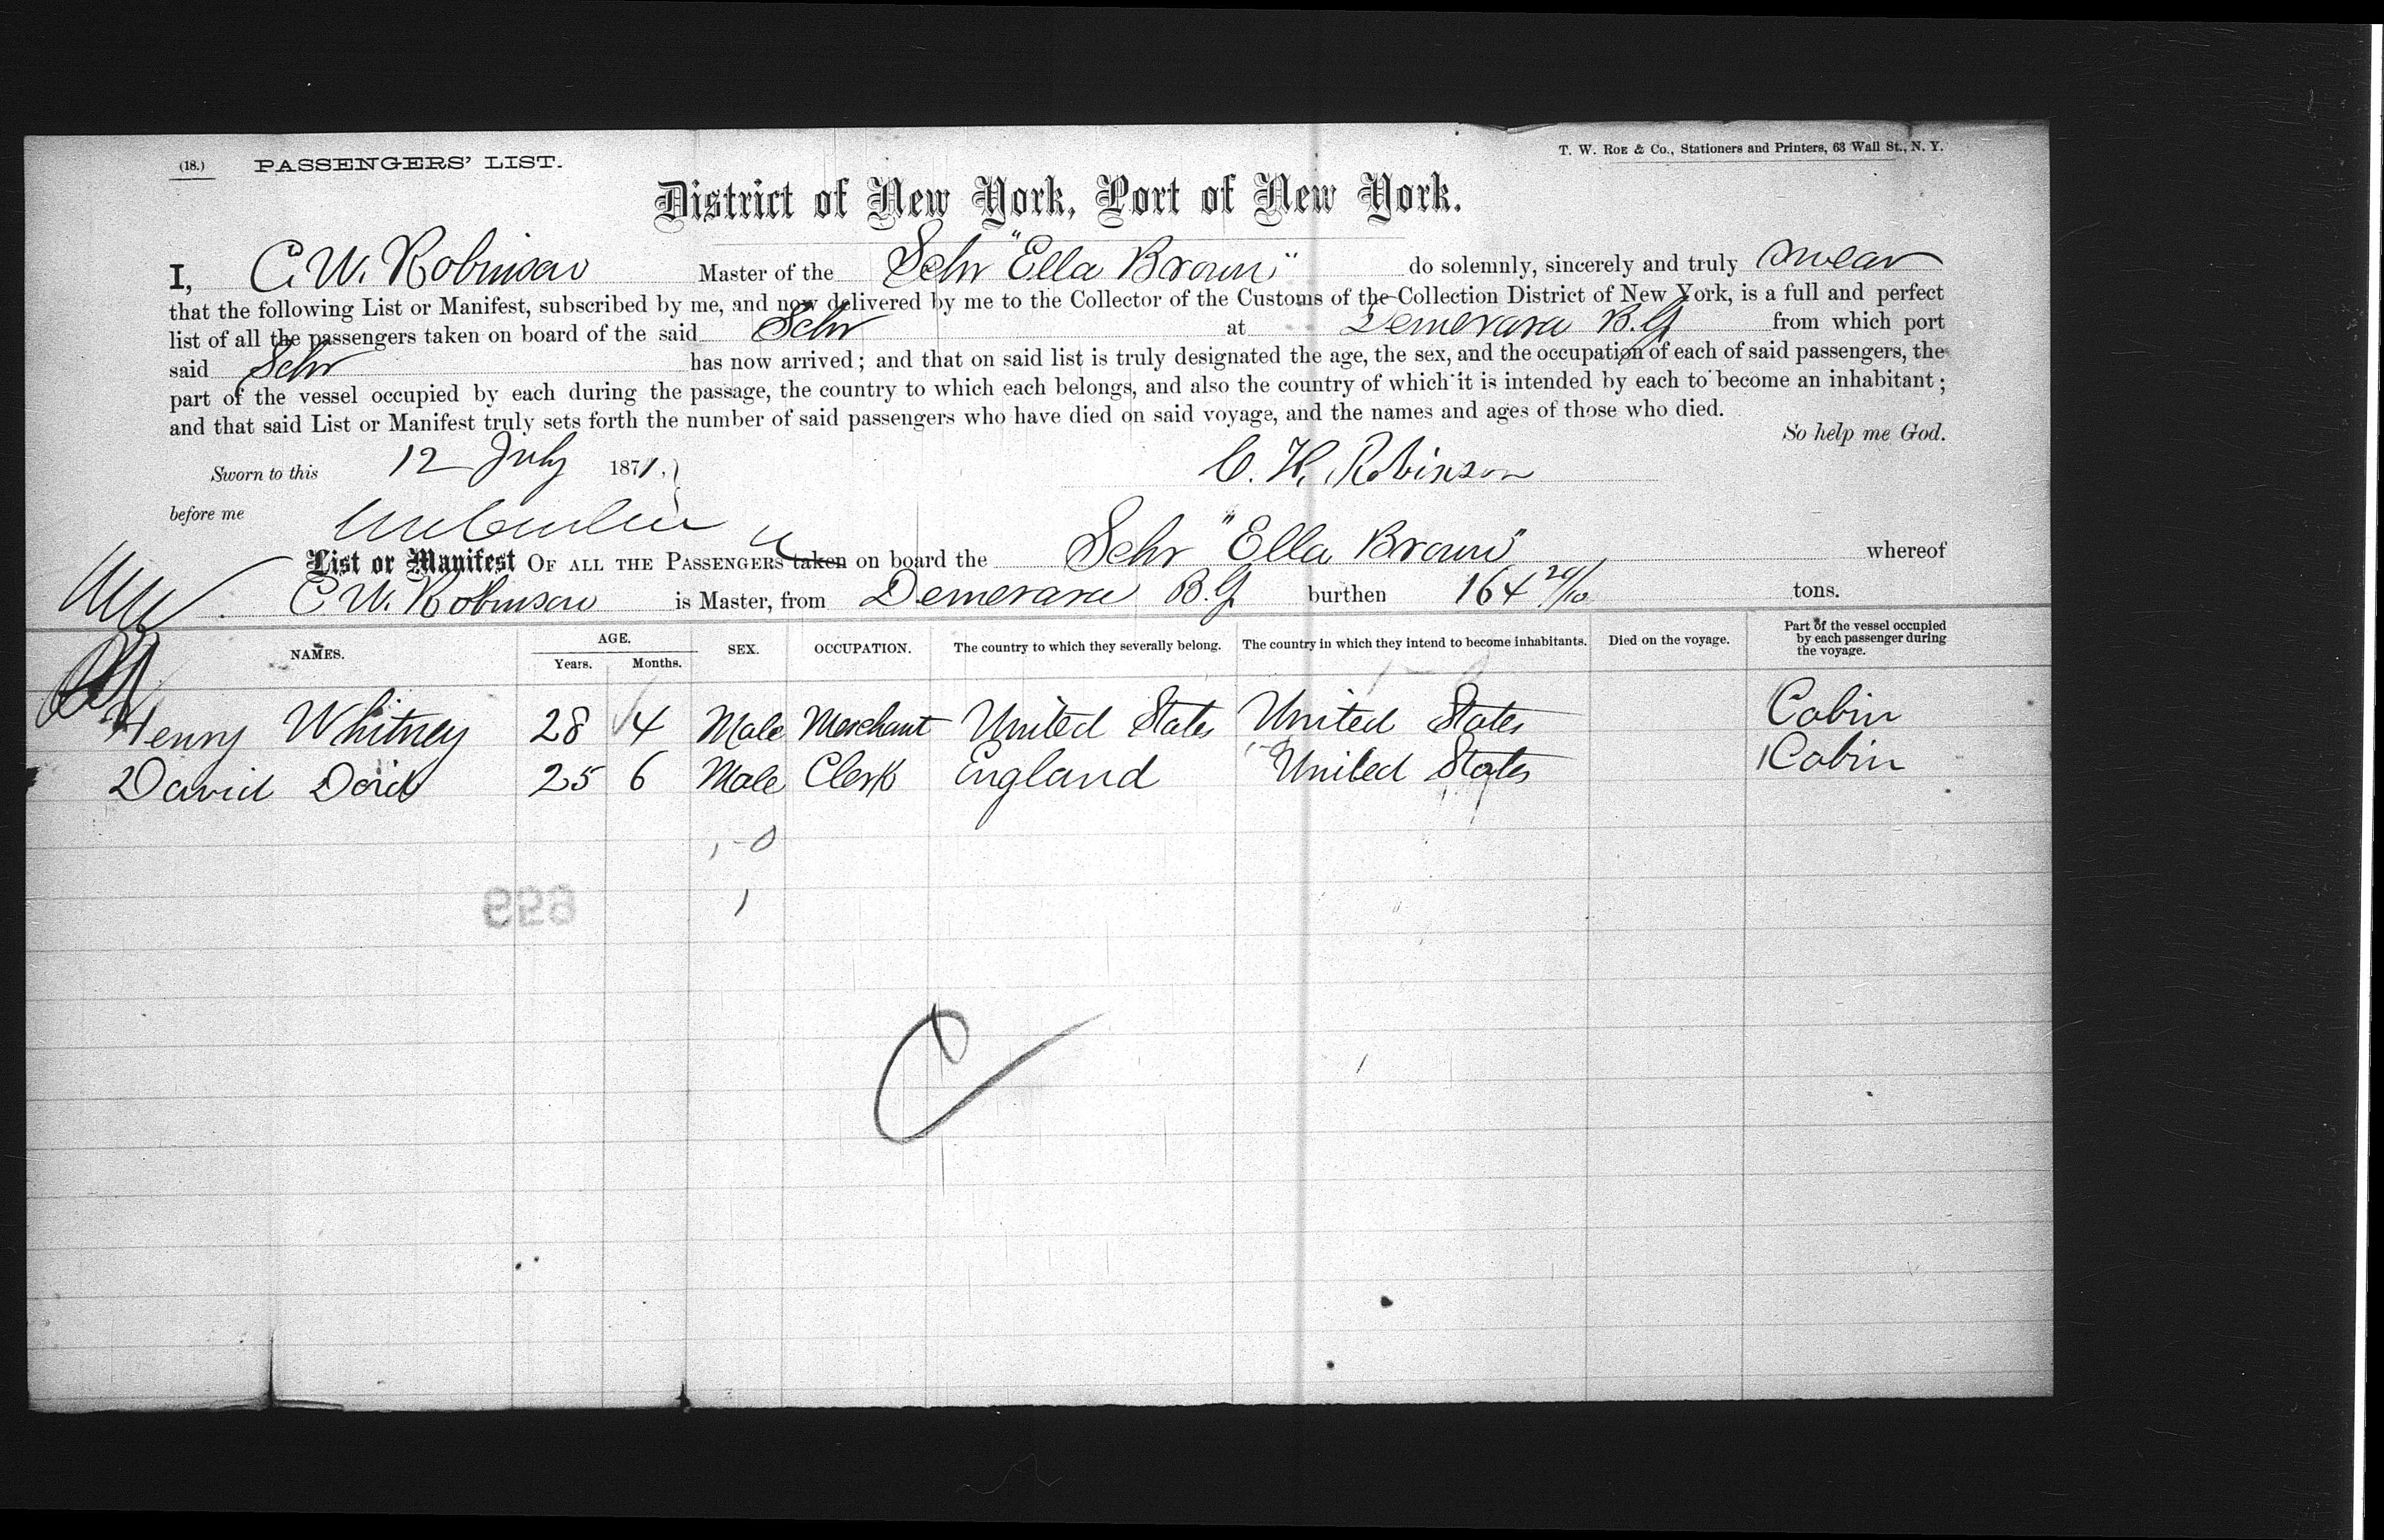 (18.) PASSENGERS' LIST.
T. W. ROE & Co., Stationers and Printers, 63 Wall St., N. Y.
District of New York, Port of New York.
I, C. W. Robinson Master of the Schr "Ella Brown" do solemnly, sincerely and truly swear
that the following List or Manifest, subscribed by me, and now delivered by me to the Collector of the Customs of the Collection District of New York, is a full and perfect
list of all the passengers taken on board of the said Schr at Demerara B.G from which port
said Schr has now arrived; and that on said list is truly designated the age, the sex, and the occupation of each of said passengers, the
part of the vessel occupied by each during the passage, the country to which each belongs, and also the country of which it is intended by each to become an inhabitant;
and that said List or Manifest truly sets forth the number of said passengers who have died on said voyage, and the names and ages of those who died.
So help me God.
Sworn to this 12 July 1871. C. H. Robinson
before me
List or Manifest OF ALL THE PASSENGERS taken on board the Schr "Ella Brown" whereof
C W. Robinson is Master, from Demerara B.G burthen 164 tons.
NAMES. AGE. Years. Months. SEX. OCCUPATION. The country to which they severally belong. The country in which they intend to become inhabitants. Died on the voyage. Part of the vessel occupied by each passenger during the voyage.
Henry Whitney 28 4 Male Merchant United States United States Cabin
David 25 6 Male Clerk England United States Cabin